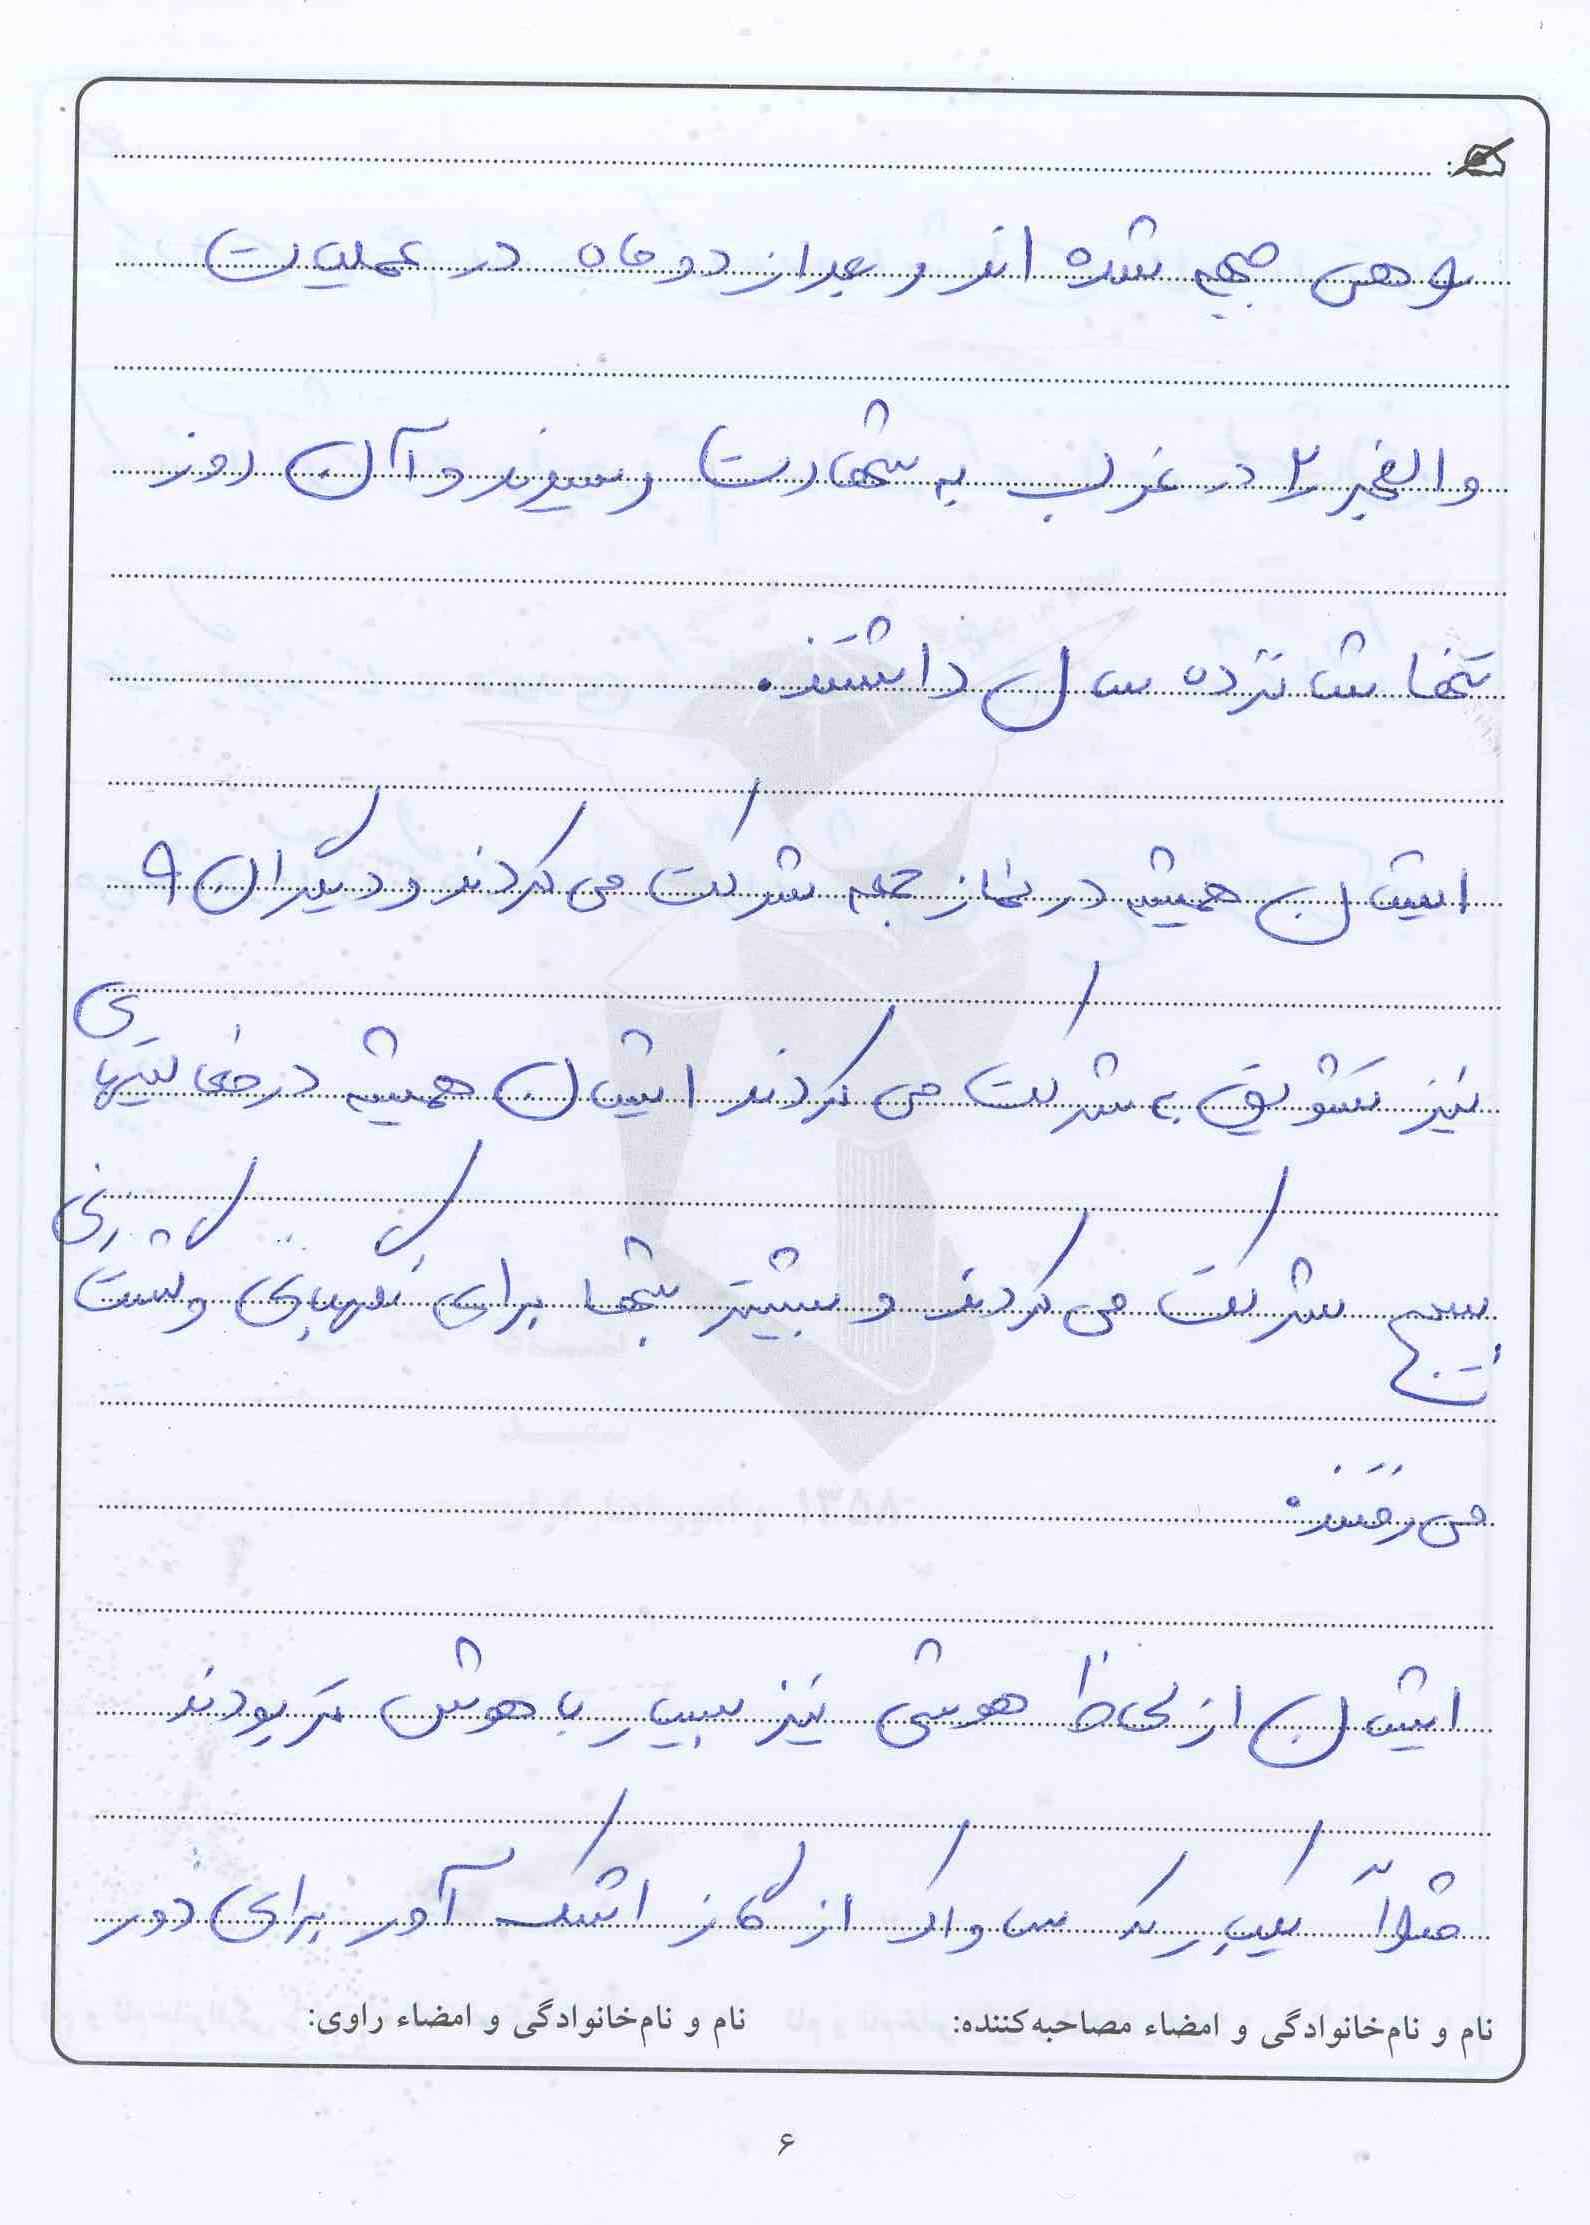 و هی جبهه شده اند و بعد از دو ماه در عملیات
والفجر ۲ در غرب به شهادت رسیدند و آن روز
تنها شانزده سال داشتند.
ایشان همیشه در نماز جمعه شرکت می کردند و دیگران
نیز تشویق به شرکت می کردند ایشان همیشه در فعالیتهای
بسیج شرکت می کردند و بیشتر شبها برای نگهبانی و گشت زنی
می رفتند.
ایشان از لحاظ هوشی نیز بسیار با هوش تر بودند
مثلاً یکبار که ساواک از گاز اشک آور برای دور
نام و نام‌خانوادگی و امضاء مصاحبه‌کننده: نام و نام‌خانوادگی و امضاء راوی:
۶